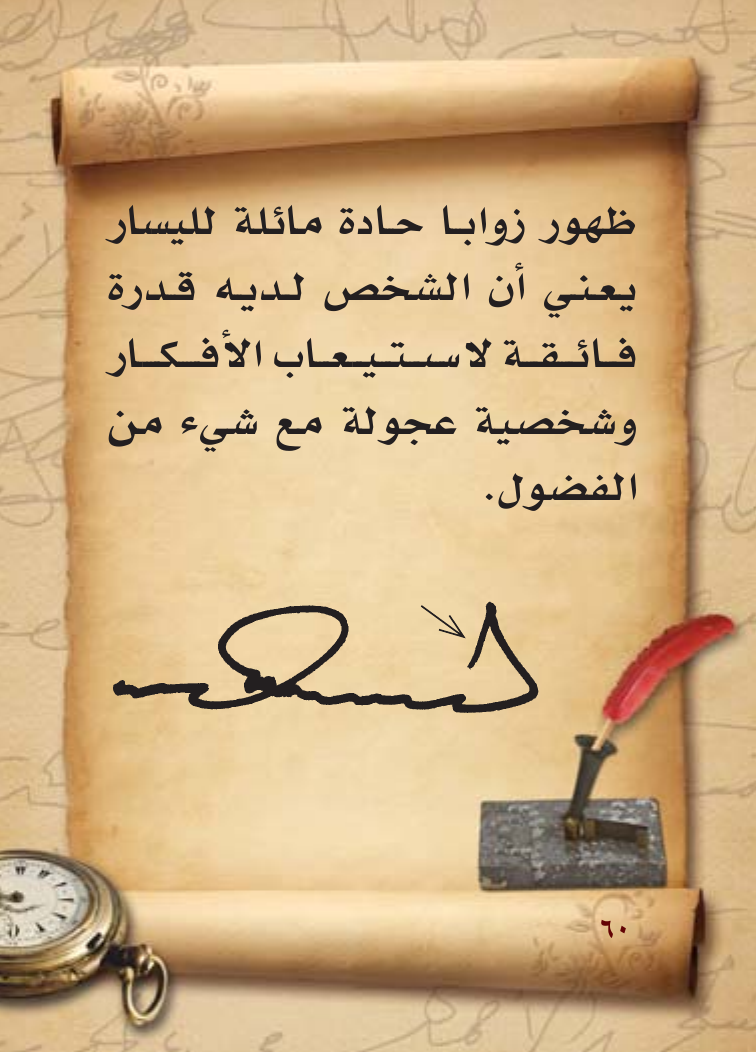 ظهور زوابا حادة مائلة لليسار
يعني أن الشخص لديه قدرة
فائقة لاستيعاب الأفكار
وشخصية عجولة مع شيء من
الفضول.
٦٠